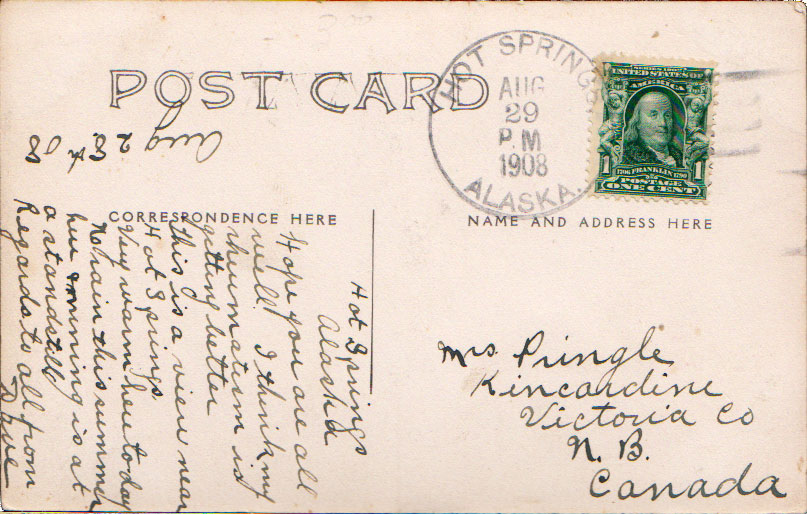 POST CARD
HOT SPRINGS
AUG
29
P.M
1908
ALASKA.
SERIES 1902
UNITED STATES OF
AMERICA
1 1
1706 FRANKLIN 1790
POSTAGE
ONE CENT
CORRESPONDENCE HERE
NAME AND ADDRESS HERE
Aug 28th 08
Hot Springs
Alaska
Hope you are all
well. I think my
rheumatism is
getting better
this is a view near
Hot Springs
Very warm here today
No rain this summer
here & mining is at
a standstill
Regards to all from
Dave
Mrs. Pringle
Kincardine
Victoria Co
N. B.
Canada